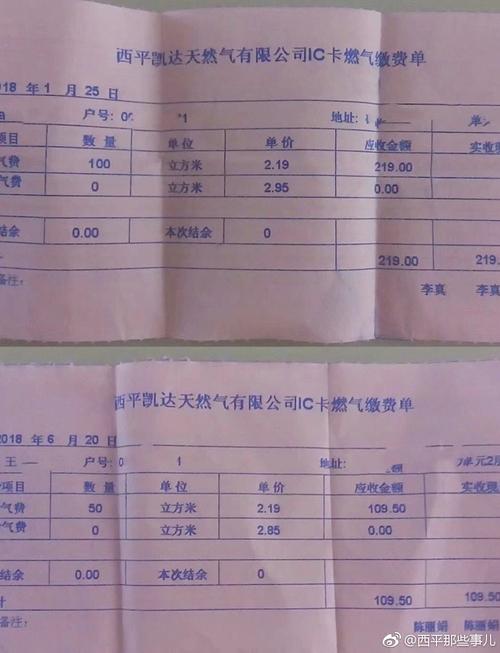 西平凯达天然气有限公司IC卡燃气缴费单
018 年 1 月 25 日
户号: 0 1 地址: 单
项目 数量 单位 单价 应收金额 实收现
气费 100 立方米 2.19 219.00
气费 0 立方米 2.95 0.00
结余 0.00 本次结余 0
219.00 219.
备注: 李真 李真
西平凯达天然气有限公司IC卡燃气缴费单
2018 年 6 月 20 日
王 户号: 0 1 地址: 单元2
项目 数量 单位 单价 应收金额 实收现
气费 50 立方米 2.19 109.50
气费 0 立方米 2.85 0.00
结余 0.00 本次结余 0
计 109.50 109.50
备注: 陈丽娟 陈丽娟
@西平那些事儿